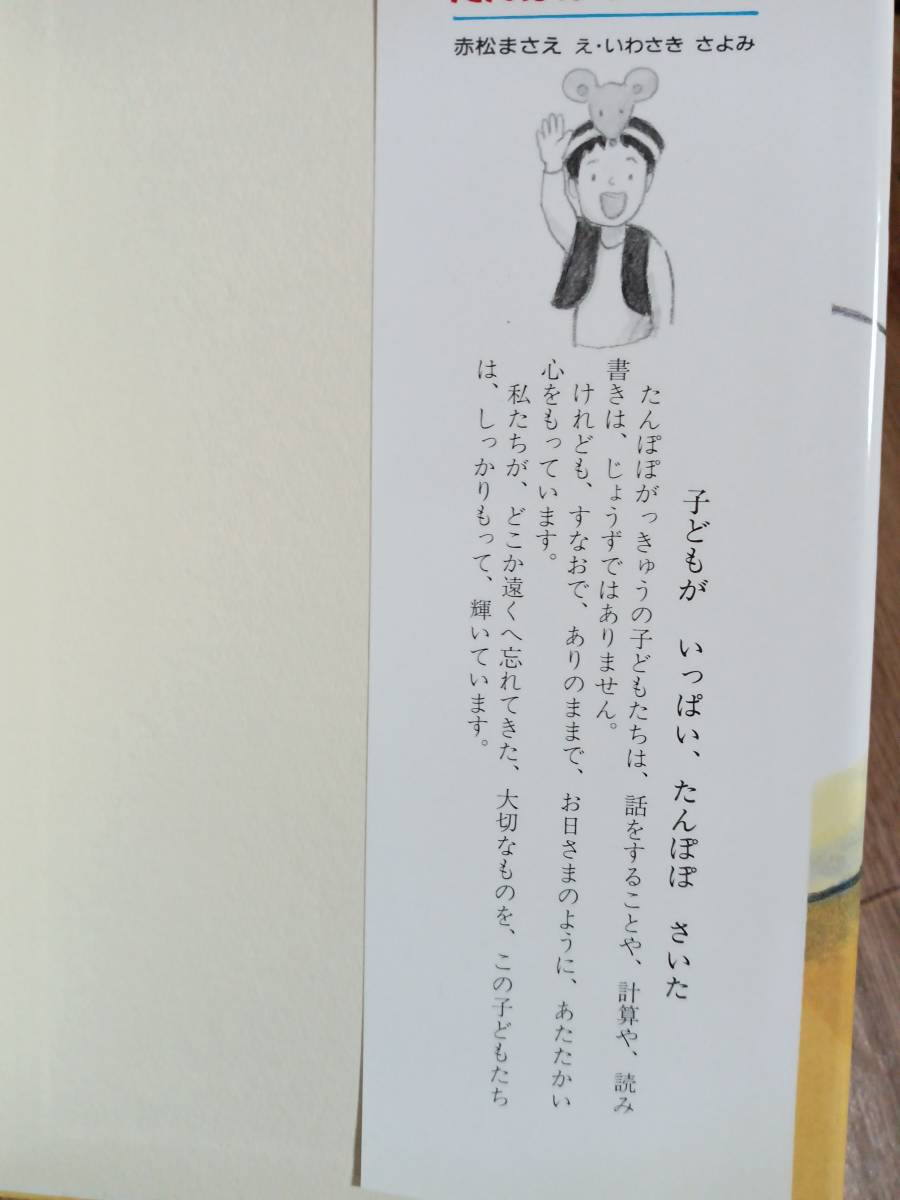 赤松まさえ え・いわさき さよみ
子どもが いっぱい、たんぽぽ さいた
たんぽぽがっきゅうの子どもたちは、話をすることや、計算や、読み
書きは、じょうずではありません。
けれども、すなおで、ありのままで、お日さまのように、あたたかい
心をもっています。
私たちが、どこか遠くへ忘れてきた、大切なものを、この子どもたち
は、しっかりもって、輝いています。